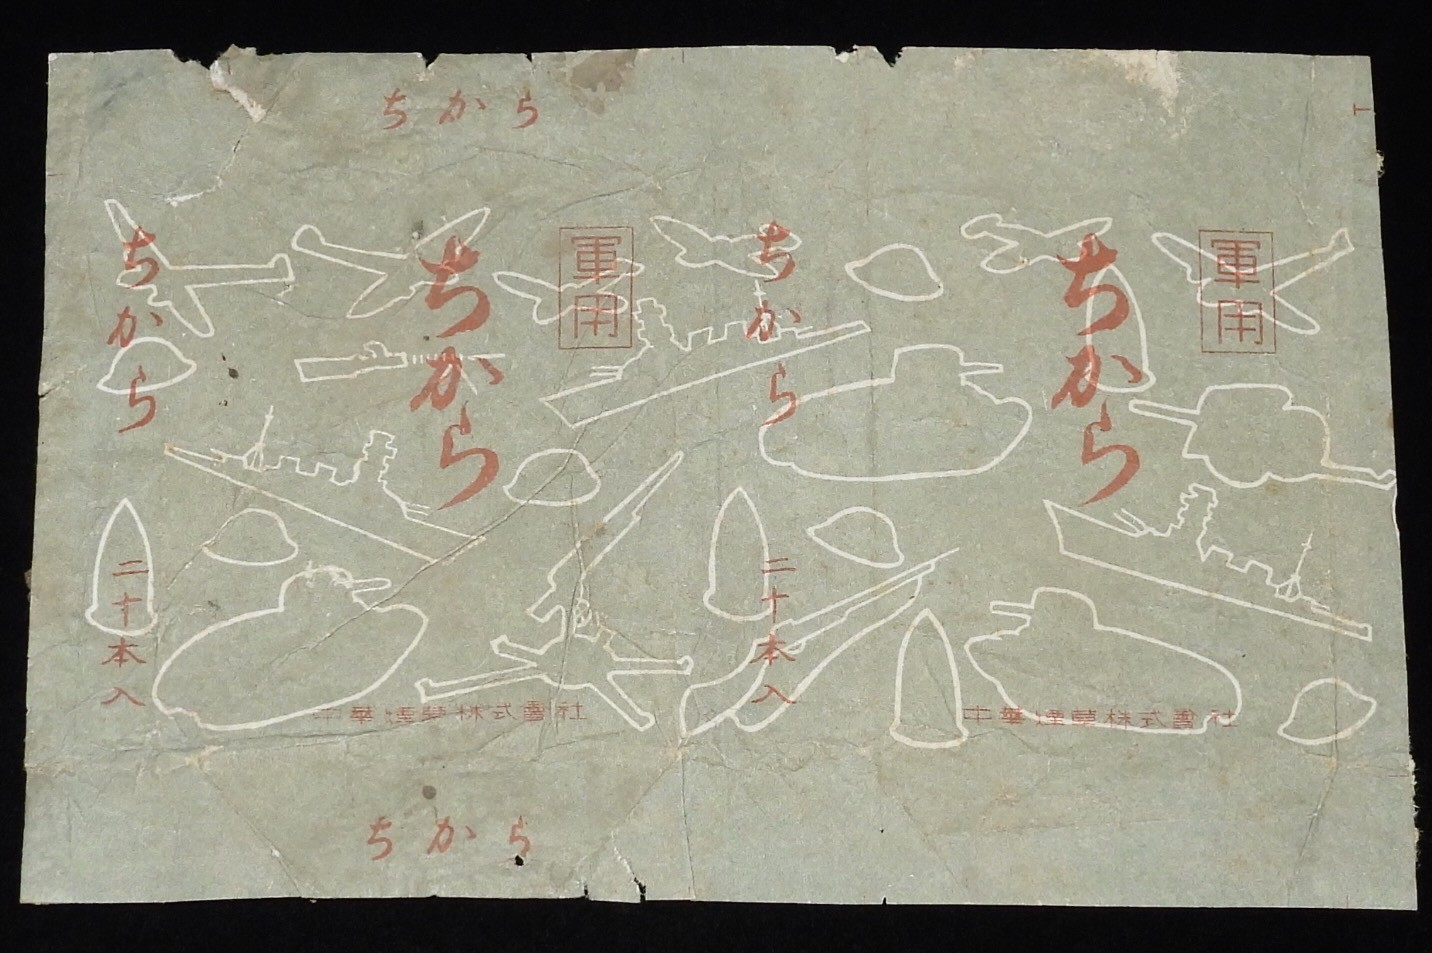 ちから
ちから
ちから
軍用
ちから
ちから
軍用
二十本入
二十本入
中華煙草株式會社
中華煙草株式會社
ちから